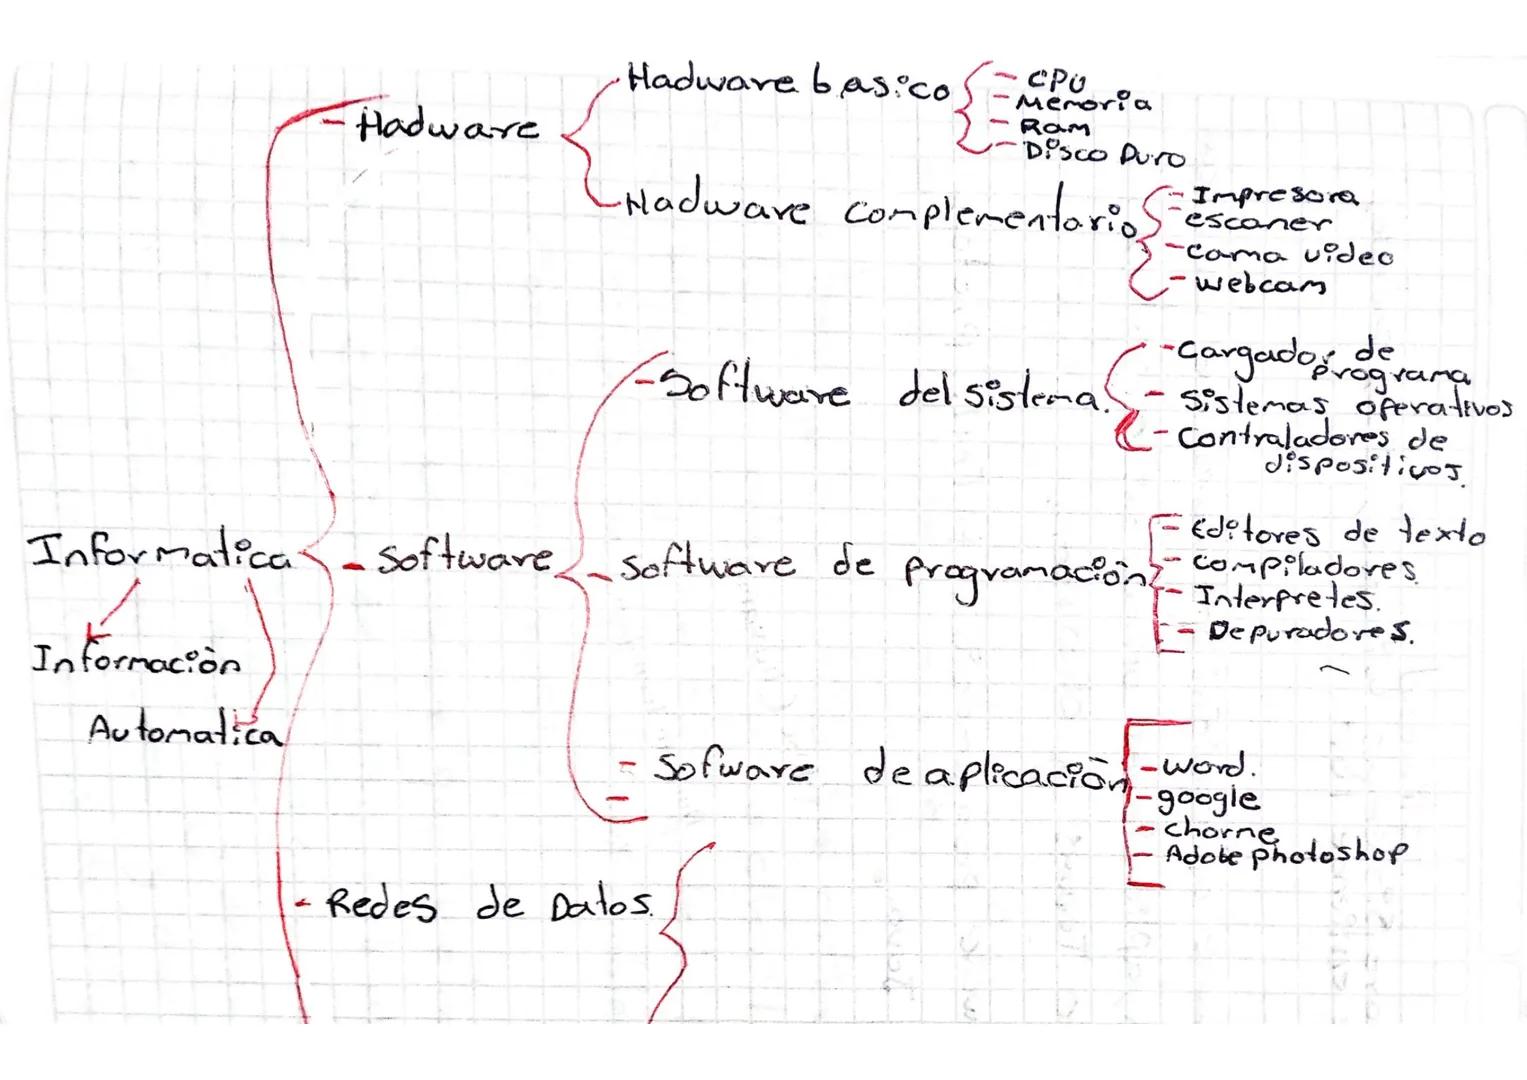 Hadware basico
- CPU
- Memoria
- Ram
- Disco Duro
- Hadware
Hadware complementario
- Impresora
- escaner
- cama video
- webcam
- Software del sistema.
- Cargador de
programa
- Sistemas operativos
- Contraladores de
dispositivos.
Informatica
- Software
- Software de programación
- Editores de texto
- Compiladores
- Interpretes.
- Depuradores.
Información
Automatica
- Sofware de aplicación
- word.
- google
- chorne
- Adobe photoshop
- Redes de Datos.